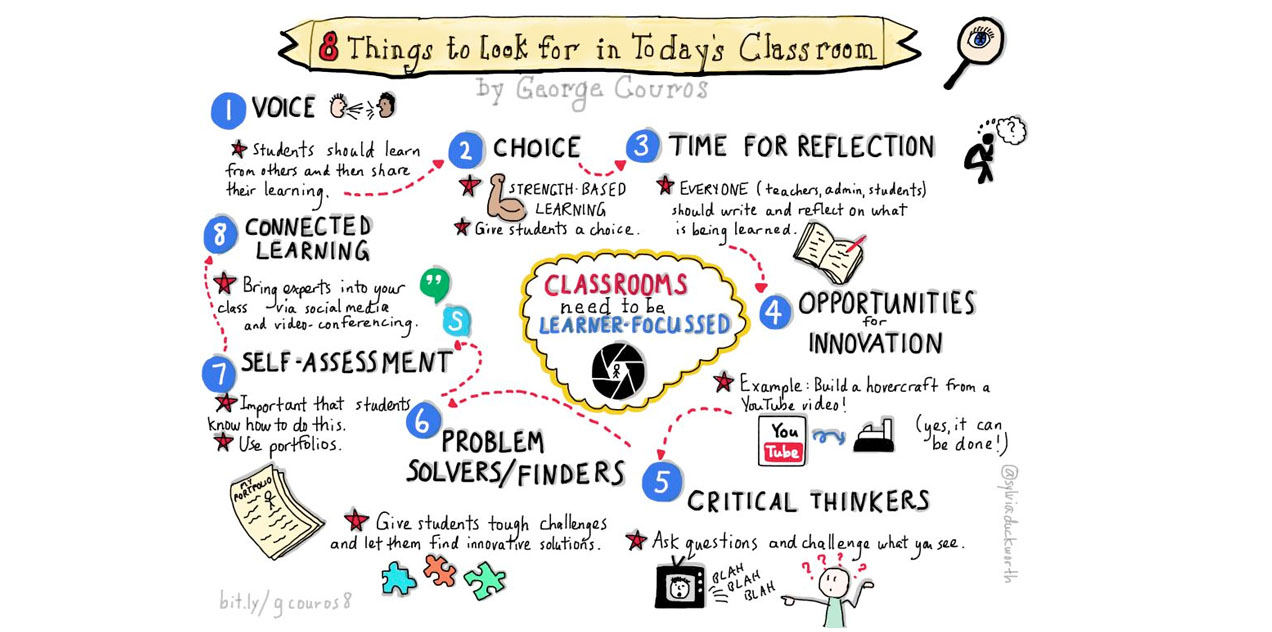 8 Things to Look for in Today's Classroom
by George Couros
1 VOICE
Students should learn
from others and then share
their learning.
2 CHOICE
STRENGTH-BASED
LEARNING
Give students a choice.
3 TIME FOR REFLECTION
?
EVERYONE (teachers, admin, students)
should write and reflect on what
is being learned.
4 OPPORTUNITIES
for
INNOVATION
Example: Build a hovercraft from a
YouTube video!
You
Tube
(yes, it can
be done!)
5 CRITICAL THINKERS
Ask questions and challenge what you see.
BLAH
BLAH
BLAH
? ? ? ?
6 PROBLEM
SOLVERS/FINDERS
Give students tough challenges
and let them find innovative solutions.
7 SELF-ASSESSMENT
Important that students
know how to do this.
Use portfolios.
MY
PORTFOLIO
8 CONNECTED
LEARNING
Bring experts into your
class via social media
and video-conferencing.
"
S
CLASSROOMS
need to be
LEARNER-FOCUSSED
bit.ly/gcouros8
@sylviaduckworth